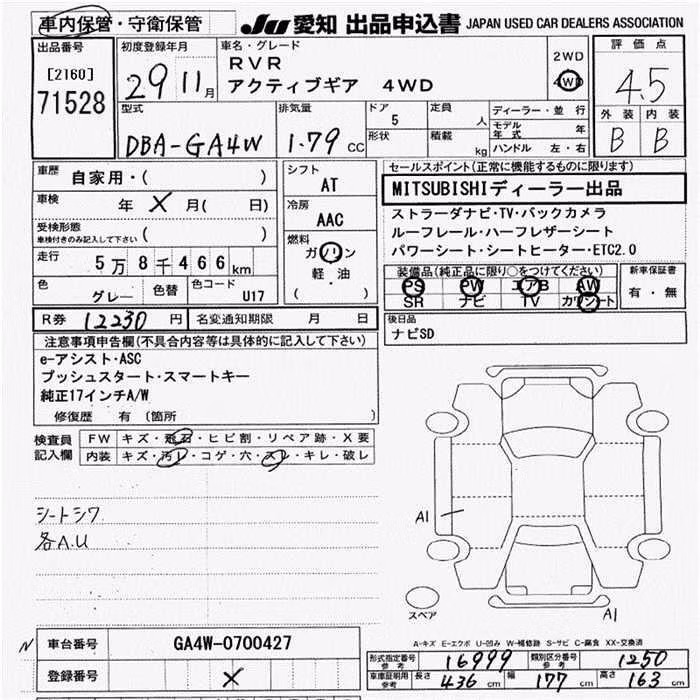 車内保管・守衛保管 JU 愛知 出品申込書 JAPAN USED CAR DEALERS ASSOCIATION
出品番号 初度登録年月 車名・グレード 評価点
[2160] 29 11月 RVR 2WD
71528 アクティブギア 4WD 4WD 4.5
型式 排気量 ドア 定員 ディーラー・並行 外装 内装
DBA-GA4W 1.79 CC 5 人 モデル年式 年 B B
形状 積載 kg ハンドル 左・右
車歴 自家用・( ) シフト AT セールスポイント(正常に機能するものに限ります)
車検 年 X 月( 日) 冷房 AAC MITSUBISHIディーラー出品
受検形態 ストラーダナビ・TV・バックカメラ
車検付きのみ記入して下さい ( ) 燃料 ルーフレール・ハーフレザーシート
走行 5万8千466km ガソリン パワーシート・シートヒーター・ETC2.0
軽・油 装備品(純正品に限り○をつけてください) 新車保証書
色 グレー 色替 色コード U17 ( ) PS PW エアB AW 有・無
SR ナビ TV カワシート
R券 12230円 名変通知期限 月 日 後日品
注意事項申告欄(不具合内容等は具体的に記入して下さい) ナビSD
e-アシスト・ASC
プッシュスタート・スマートキー
純正17インチA/W
修復歴 有 (箇所 )
検査員 FW キズ・飛石・ヒビ割・リペア跡・X要
記入欄 内装 キズ・汚レ・コゲ・穴・スレ・キレ・破レ
シートシワ
各A.U
A1
スペア A1
A-キズ E-エクボ U-凹み W-補修跡 S-サビ C-腐食 XX-交換済
N 車台番号 GA4W-0700427
登録番号 X
形式指定番号 参考 16999 類別区分番号 参考 1250
車庫証明用 参考 長さ 436 cm 幅 177 cm 高さ 163 cm